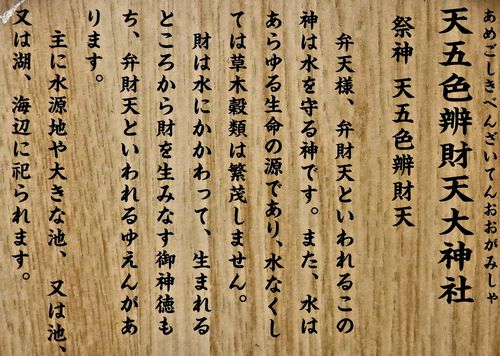 あめごしきべんざいてんおおがみしゃ
天五色辨財天大神社
祭神 天五色辨財天
弁天様、弁財天といわれるこの
神は水を守る神です。また、水は
あらゆる生命の源であり、水なくし
ては草木穀類は繁茂しません。
財は水にかかわって、生まれる
ところから財を生みなす御神徳も
ち、弁財天といわれるゆえんがあ
ります。
主に水源地や大きな池、又は池、
又は湖、海辺に祀られます。